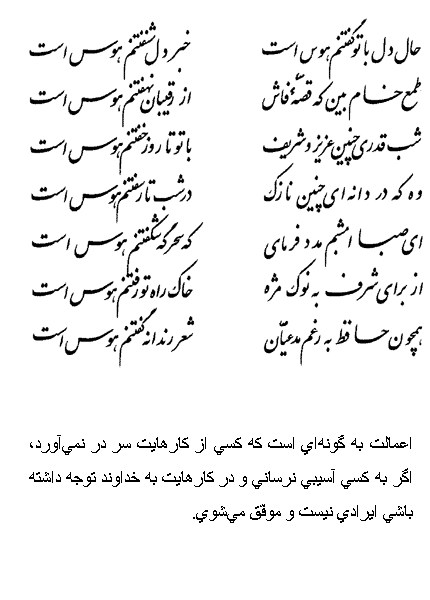 حال دل با تو گفتنم هوس است خبر دل شنفتنم هوس است
طمع خام بین که قصهٔ فاش از رقیبان نهفتنم هوس است
شب قدری چنین عزیز و شریف با تو تا روز خفتنم هوس است
وه که دردانه‌ای چنین نازک در شب تار سفتنم هوس است
ای صبا امشبم مدد فرمای که سحرگه شکفتنم هوس است
از برای شرف به نوک مژه خاک راه تو رفتنم هوس است
همچو ن حافظ به رغم مدعیان شعر رندانه گفتنم هوس است
اعمالت به گونه‌اي است كه كسي از كارهايت سر در نمي‌آورد،
اگر به كسي آسيبي نرساني و در كارهايت به خداوند توجه داشته
باشي ايرادي نيست و موفق مي‌شوي.